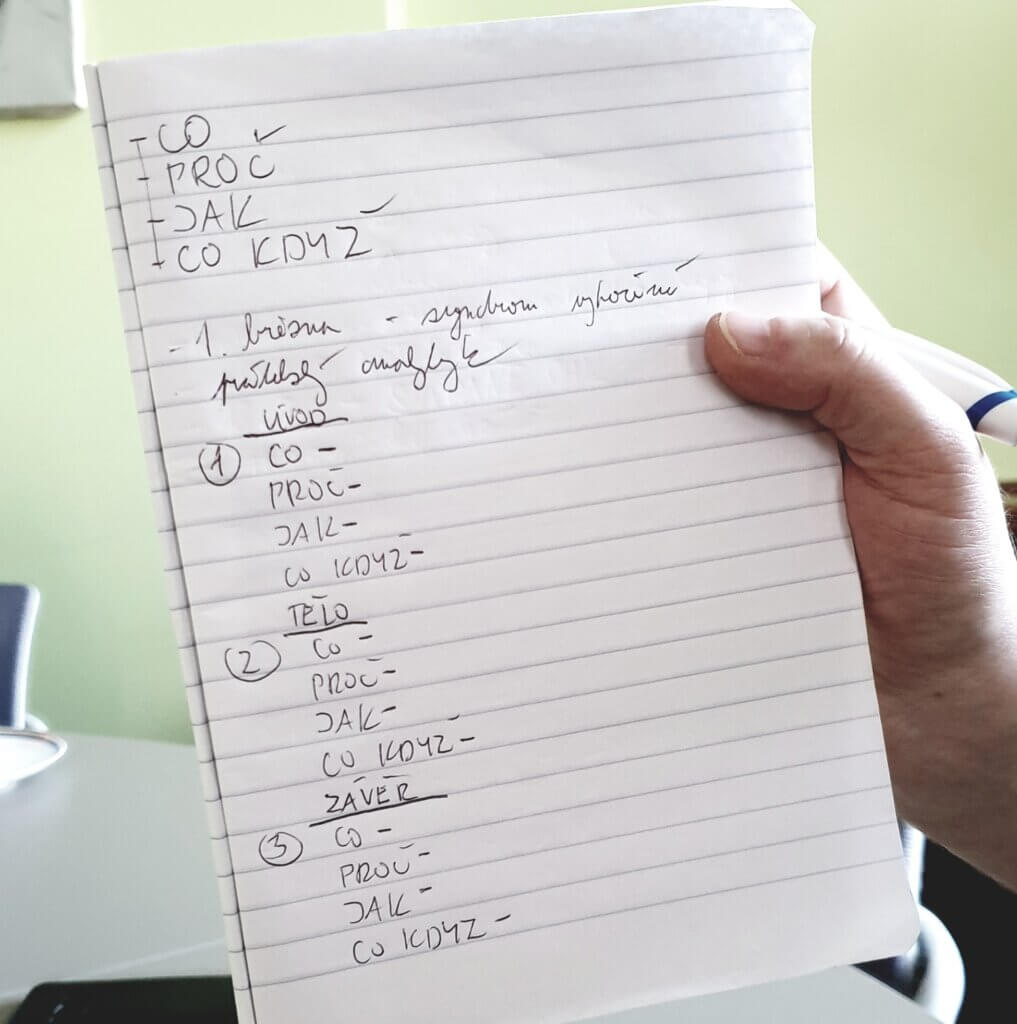 - CO
- PROČ
- JAK
- CO KDYŽ
- 1. března - syndrom vyhoření
analytyk
ÚVOD
1 CO -
PROČ -
JAK -
CO KDYŽ -
TĚLO
2 CO -
PROČ -
JAK -
CO KDYŽ -
ZÁVĚR
3 CO -
PROČ -
JAK -
CO KDYŽ -